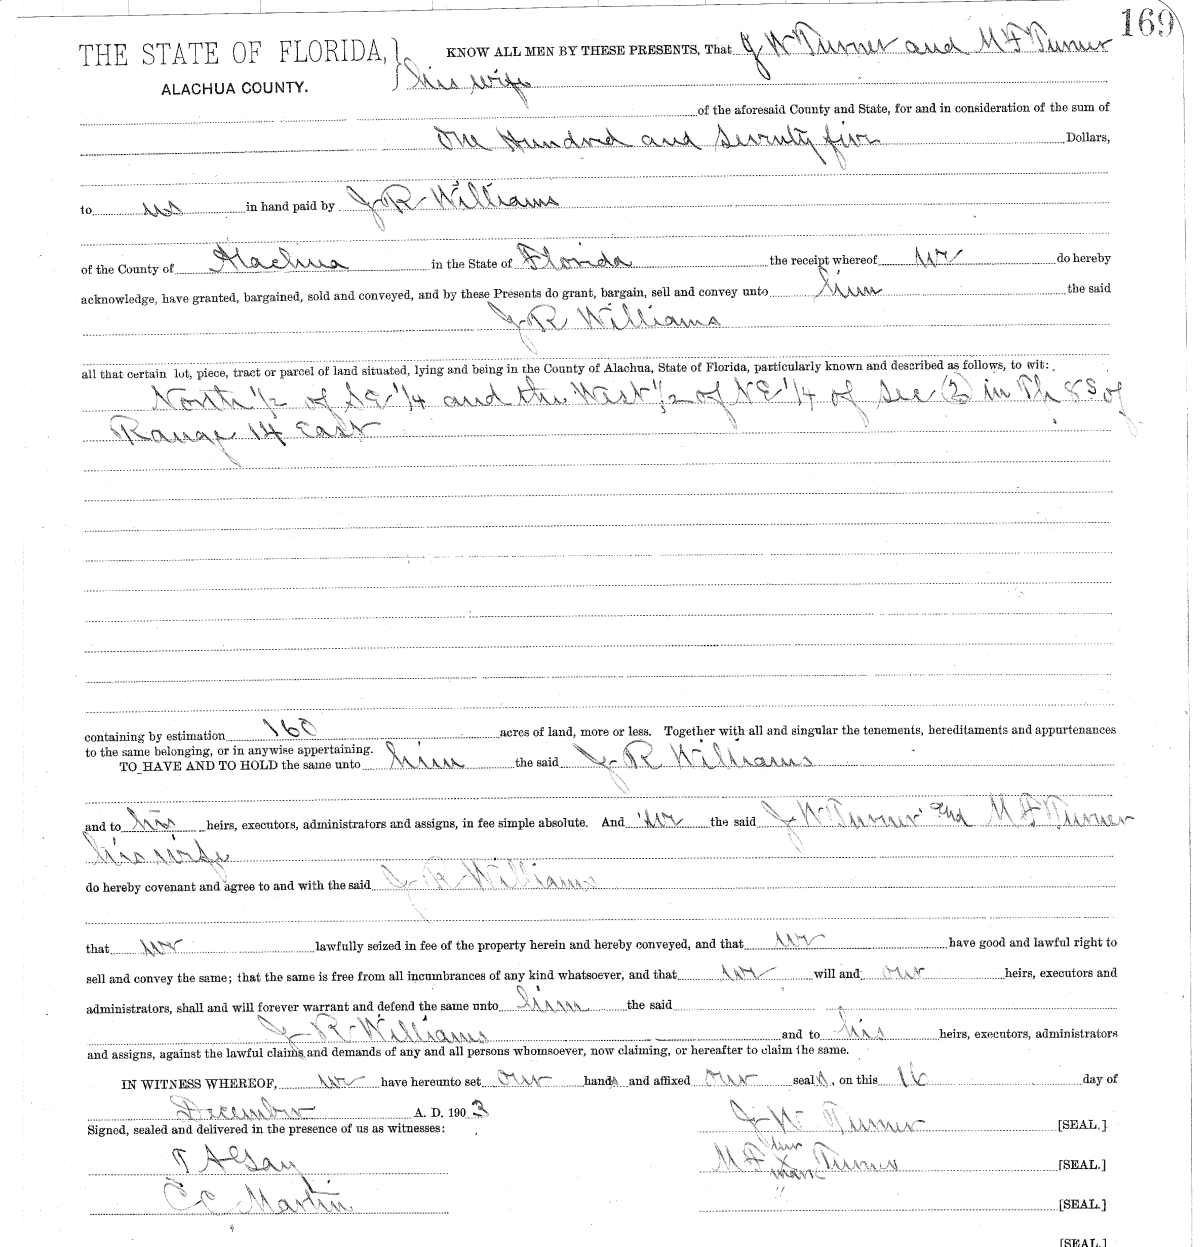 169
THE STATE OF FLORIDA, } KNOW ALL MEN BY THESE PRESENTS, That J W Turner and M F Turner
ALACHUA COUNTY. his wife
of the aforesaid County and State, for and in consideration of the sum of
One Hundred and Seventy five Dollars,
to us in hand paid by J R Williams
of the County of Alachua in the State of Florida the receipt whereof we do hereby
acknowledge, have granted, bargained, sold and conveyed, and by these Presents do grant, bargain, sell and convey unto him the said
J R Williams
all that certain lot, piece, tract or parcel of land situated, lying and being in the County of Alachua, State of Florida, particularly known and described as follows, to wit:
North 1/2 of SE 1/4 and the West 1/2 of NE 1/4 of Sec (2) in Tp 8S of
Range 14 East
containing by estimation 160 acres of land, more or less. Together with all and singular the tenements, hereditaments and appurtenances
to the same belonging, or in anywise appertaining.
TO HAVE AND TO HOLD the same unto him the said J R Williams
and to his heirs, executors, administrators and assigns, in fee simple absolute. And we the said J W Turner and M F Turner
his wife
do hereby covenant and agree to and with the said J R Williams
that we lawfully seized in fee of the property herein and hereby conveyed, and that we have good and lawful right to
sell and convey the same; that the same is free from all incumbrances of any kind whatsoever, and that we will and our heirs, executors and
administrators, shall and will forever warrant and defend the same unto him the said
J R Williams and to his heirs, executors, administrators
and assigns, against the lawful claims and demands of any and all persons whomsoever, now claiming, or hereafter to claim the same.
IN WITNESS WHEREOF, we have hereunto set our hands and affixed our seals, on this 16 day of
December A. D. 1903 J W Turner [SEAL.]
Signed, sealed and delivered in the presence of us as witnesses:
her
T A Gay M F X Turner [SEAL.]
mark
C C Martin [SEAL.]
[SEAL.]